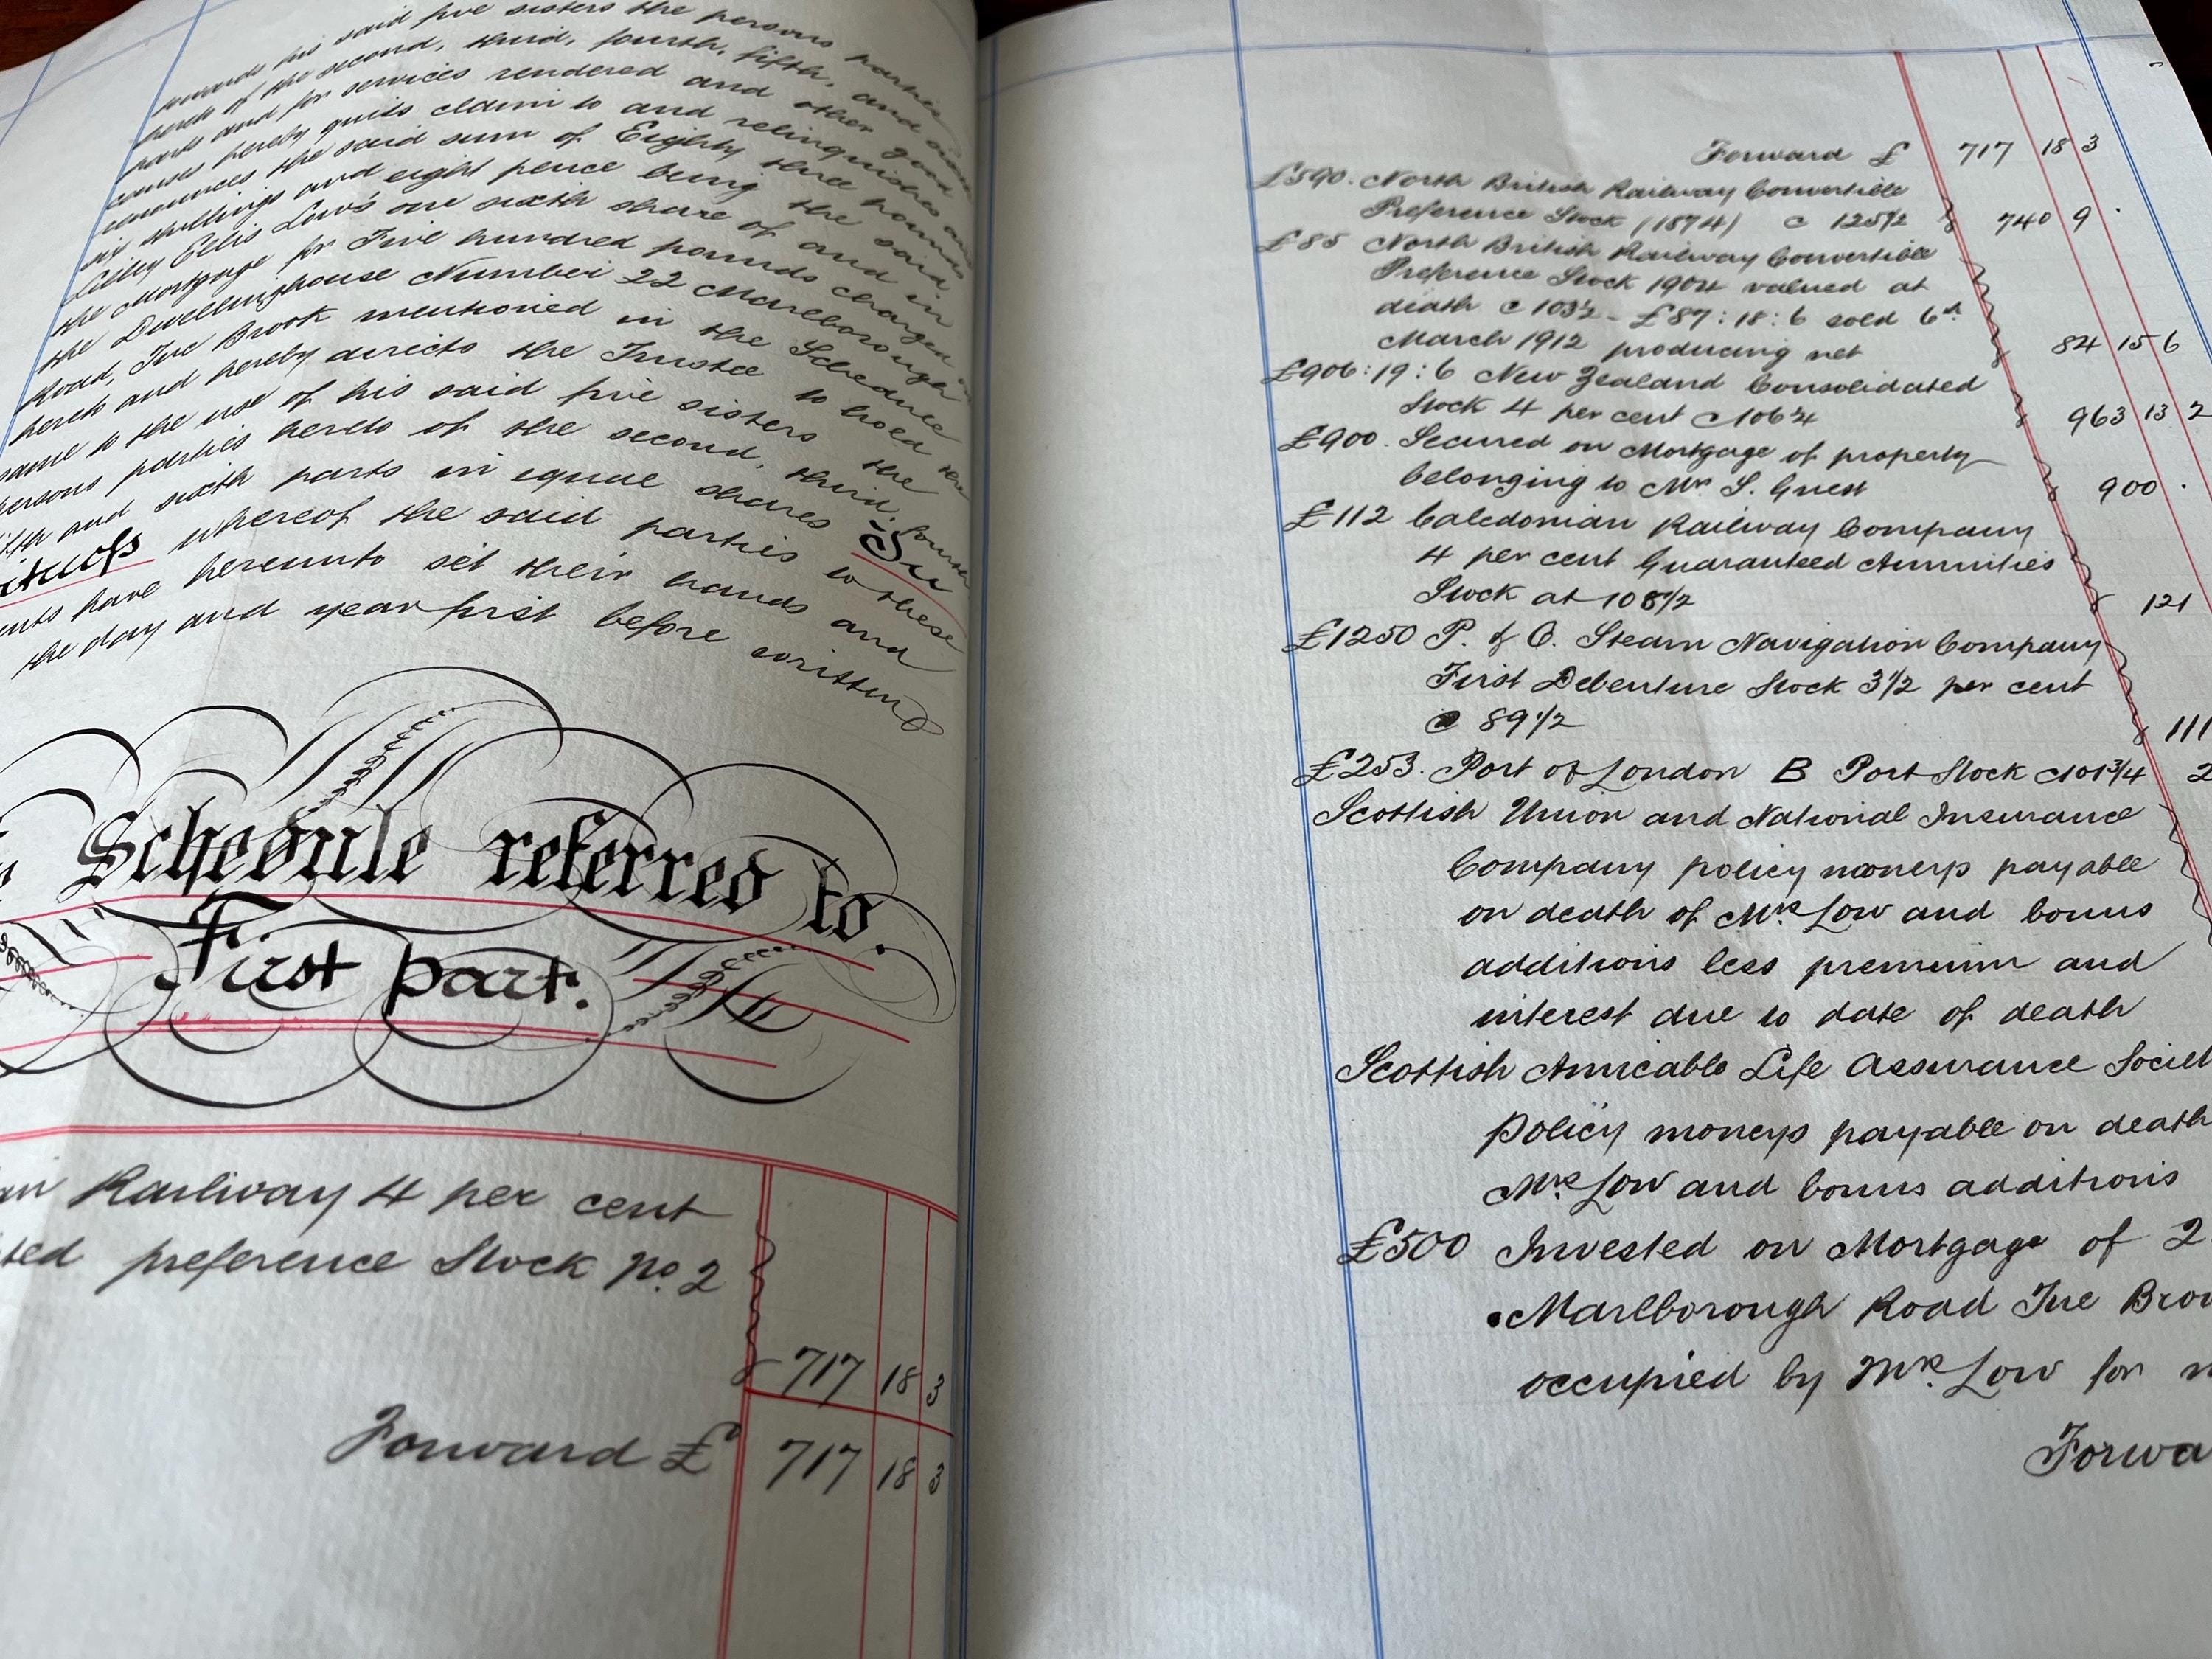 towards his said five sisters the persons parties
hereto of the second, third, fourth, fifth, and sixth
parts and for services rendered and other good
causes hereby quits claim to and relinquishes and
renounces the said sum of Eighty three pounds
six shillings and eight pence being the said
Lilly Ellis Low's one sixth share of and in
the Mortgage for Five hundred pounds charged
the Dwellinghouse Number 22 Marlborough
Road, Tue Brook mentioned in the Schedule
hereto and hereby directs the Trustee to hold the
same to the use of his said five sisters the
persons parties hereto of the second, third, fourth
fifth and sixth parts in equal shares In
itness whereof the said parties to these
ents have hereunto set their hands and
the day and year first before written
Schedule referred to.
First part.
an Railway 4 per cent
ted preference Stock No. 2
717 18 3
Forward £ 717 18 3
Forward £ 717 18 3
£590. North British Railway Convertible
Preference Stock (1874) @ 125½ 740 9 .
£85 North British Railway Convertible
Preference Stock 1904 valued at
death @ 103½ - £87:18:6 sold 6th
March 1912 producing net 84 15 6
£906:19:6 New Zealand Consolidated
Stock 4 per cent @ 106¼ 963 13 2
£900. Secured on Mortgage of property
belonging to Mr S. Guest 900 .
£112 Caledonian Railway Company
4 per cent Guaranteed Annuities
Stock at 108½ 121
£1250 P. & O. Steam Navigation Company
First Debenture Stock 3½ per cent
@ 89½ 111
£253. Port of London B Port Stock @ 101¾ 2
Scottish Union and National Insurance
Company policy moneys payable
on death of Mr. Low and bonus
additions less premium and
interest due to date of death
Scottish Amicable Life Assurance Societ
policy moneys payable on death
Mr. Low and bonus additions
£500 Invested on Mortgage of 2
Marlborough Road Tue Broo
occupied by Mr. Low for
Forwa